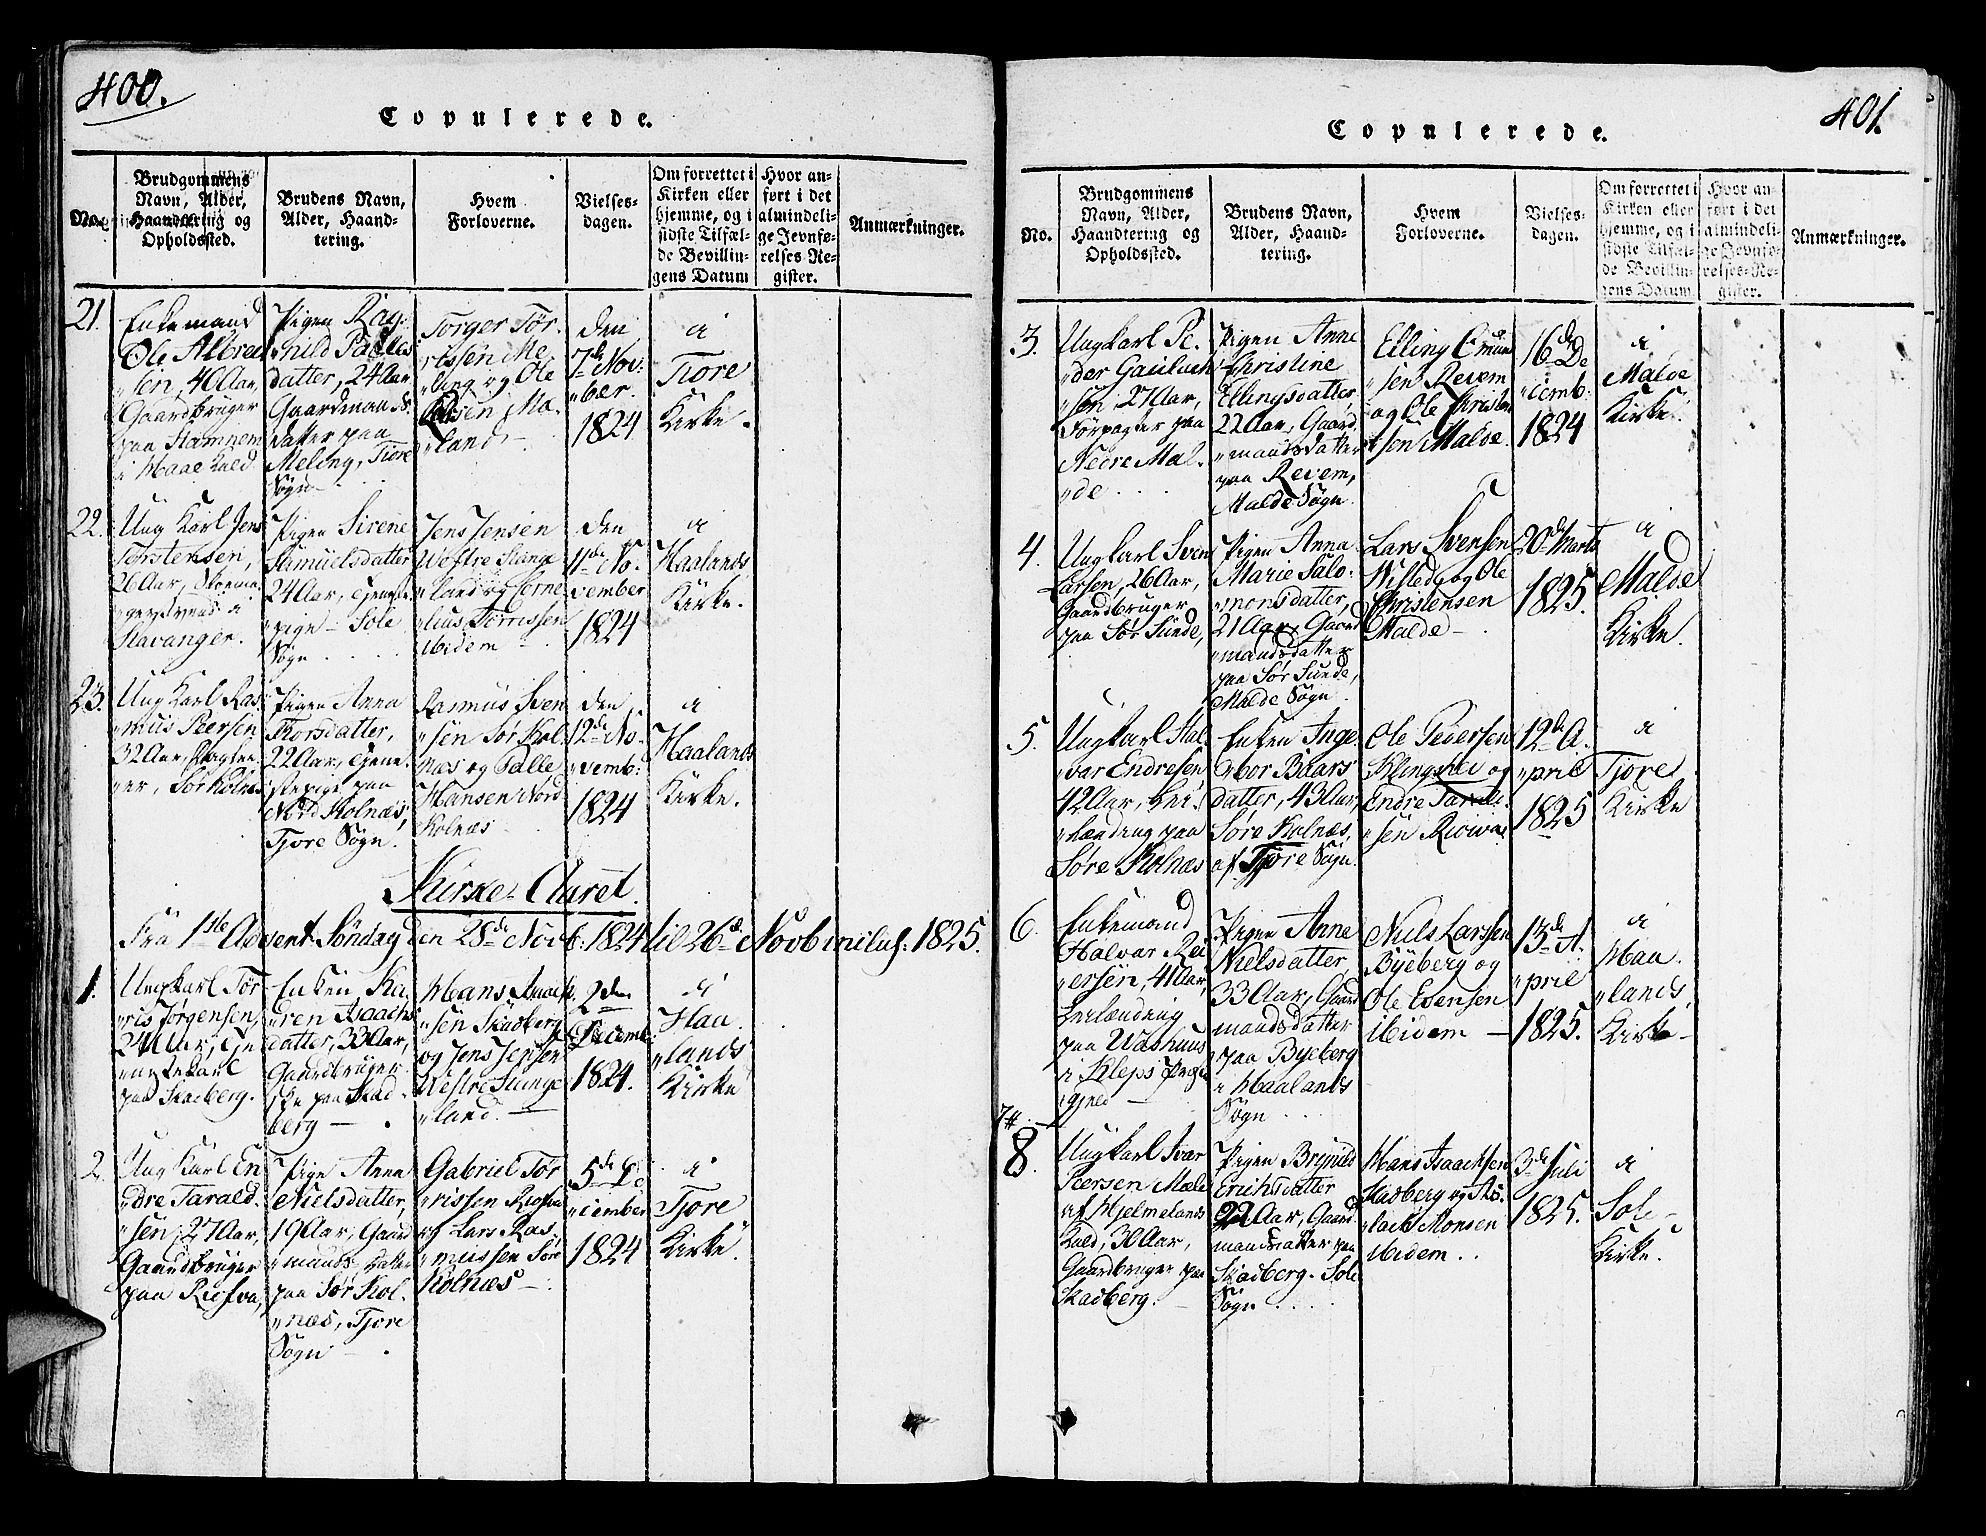 400.
Copulerede.
No.
Brudgommens
Navn, Alder,
Haandtering og
Opholdssted.
Brudens Navn,
Alder, Haand-
tering.
Hvem
Forloverne.
Vielses-
dagen.
Om forrettet i
Kirken eller
hjemme, og i
sidste Tilfæl-
de Bevillin-
gens Datum
Hvor an-
ført i det
almindeli-
ge Jevnfø-
relses Re-
gister.
Anmærkninger.
21.
Enkemand
Ole Albret
"sen, 40 Aar,
Gaardbruger
paa Hamnem
i Haae
Pigen Rag-
nild Palles
datter, 24 Aar
Gaardmands
datter paa
Meling, Tiore
Sogn
Torger Tør-
rissen Me
"ling og Ole
Olsen Ma-
"land
den
7de Nov-
"ber.
1824
i
Tiore
Kirke.
22.
Ung Karl Jens
Torstensen,
26 Aar, Skoma
"gersvend i
Stavanger.
Pigen Sirene
Samuelsdatter
24 Aar, Tjeneste
"pige Sole
Sogn
Jens Jensen
Westre Sunge
"land og Corne
"lius Torrissen
ibidem
den
11de No-
vember
1824
i
Haalands
Kirke.
23.
Ung Karl Ras
"mus Peersen
32 Aar,
"er, Sør Kolnes
Pigen Anna
Thorsdatter,
22 Aar, Tjene
stepige paa
Nord Kolnæs,
Tjore Sogn.
Rasmus Sven
"sen Sør Kol-
næs og Palle
Hansen Nord
Kolnæs
den
12de No-
"vemb:
1824
i
Haalands
Kirke.
Kirke-Aaret.
Fra 1ste Advent Søndag den 28de Novb: 1824 til 26de Novb inclus: 1825.
1.
Ungkarl Tør
"ris Jørgensen,
24 Aar, Tje
"nestekarl
paa Skadberg.
Enken Ka
"ren Isaachs
datter, 33 Aar,
Gaardbruger
ske paa Skad-
berg
Hans Isaach
"sen Skadberg
og Jens Jepsen
Westre Sunge
"land.
2den
Decemb:
1824.
i
Haa-
"lands
Kirke
2.
Ung Karl En
"dre Tarald-
"sen, 27 Aar,
Gaardbruger
paa Risva,
Pige Anna
Nielsdatter,
19 Aar, Gaard
"mands datter
paa Sør Kol-
"næs, Tjore
Sogn
Gabriel Tør
"rissen Riisva
og Lars Ras-
"mussen Søre
Kolnæs
5de De
"cember
1824
i
Tjore
Kirke.
401.
Copulerede.
No.
Brudgommens
Navn, Alder,
Haandtering og
Opholdssted.
Brudens Navn,
Alder, Haand-
tering.
Hvem
Forloverne.
Vielses-
dagen.
Om forrettet i
Kirken eller
hjemme, og i
sidste Tilfæl-
de Bevillin-
gens Datum
Hvor an-
ført i det
almindeli-
ge Jevnfø-
relses-Re-
gister.
Anmærkninger.
3.
Ungkarl Pe-
"der Gautuch
"sen, 27 Aar,
Forpagter paa
Nedre Mal-
"de
Pigen Anne
Christine
Ellingsdatter
22 Aar, Gaard
"mandsdatter
paa Revem,
Malde Sogn.
Elling Omun
"sen Revem
og Ole Christen
"sen Malde.
16de De
"cemb:
1824
i
Malde
Kirke.
4.
Ungkarl Sven
Larsen, 26 Aar,
Gaardbruger
paa Sør Sunde,
Pigen Anna
Marie Salo-
"monsdatter,
21 Aar, Gaard
"mandsdatter
paa Sør Sunde,
Malde Sogn.
Lars Svensen
Wisted og Ole
Christensen
Malde
20de Marts
1825.
i
Malde
Kirke.
5.
Ungkarl Hal-
"var Endresen
42 Aar, Ind-
"lænding paa
Søre Kolnæs
Enken Inge-
"bor Baars
datter, 43 Aar,
Søre Kolnæs,
af Tjore Sogn.
Ole Pedersen
og
Endre Tarald-
"sen Risva
12de A-
"pril
1825
i
Tjore
Kirke
6.
Enkemand
Halvar Rei
"ersen, 41 Aar,
Inlænding
paa Washuus
i Kleps Præste
"gjeld
Pigen Anne
Nielsdatter,
33 Aar, Gaard
mandsdatter
paa Byeberg
i Haalands
Sogn
Niels Larsen
Byeberg og
Ole Evensen
ibidem
13de A-
"pril
1825.
i
Haa-
"lands
Kirke
7#
8.
Ungkarl Ivar
Peersen Mæle
af Hjelmelands
Quld, 30 Aar,
Gaardbruger paa
Skadberg.
Pigen Brynild
Erichsdatter
22 Aar, Gaard
mandsdatter paa
Skadberg. Sole
Sogn
Hans Isaachsen
Skadberg og As-
"lach Monsen
ibidem.
3de Juli
1825.
i
Sole
Kirke.